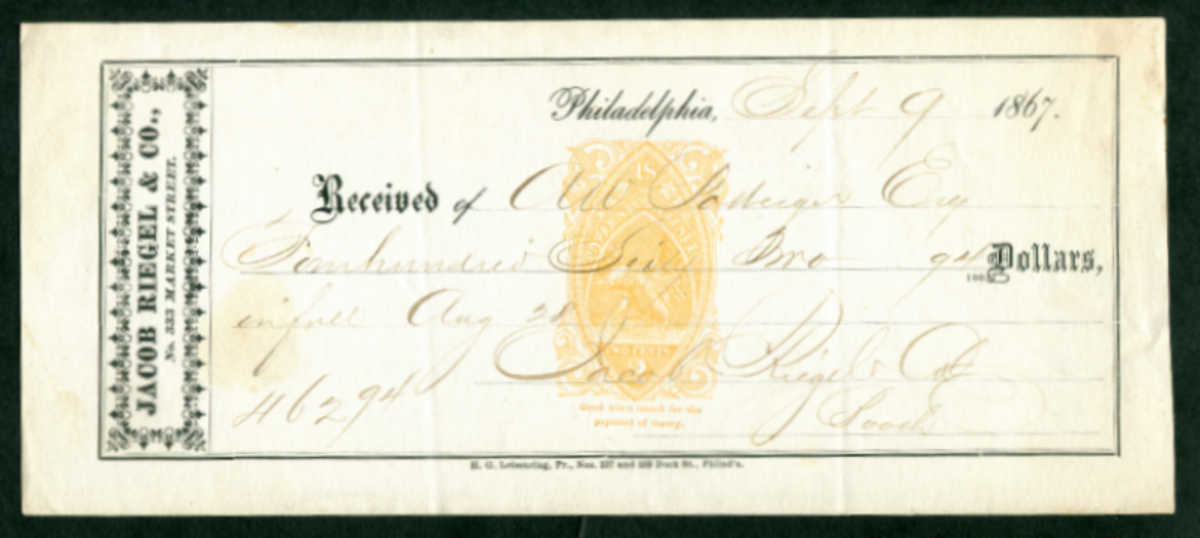 JACOB RIEGEL & CO.,
No. 333 MARKET STREET.
Philadelphia, Sept 9 1867.
Received of Esq
Four hundred Sixty Two 94/100 Dollars,
in full Aug 28
Jacob Riegel & Co
462 94
U.S.
2
Good when issued for the
payment of money.
H. G. Leisenring, Pr., Nos. 237 and 239 Dock St., Philad'a.